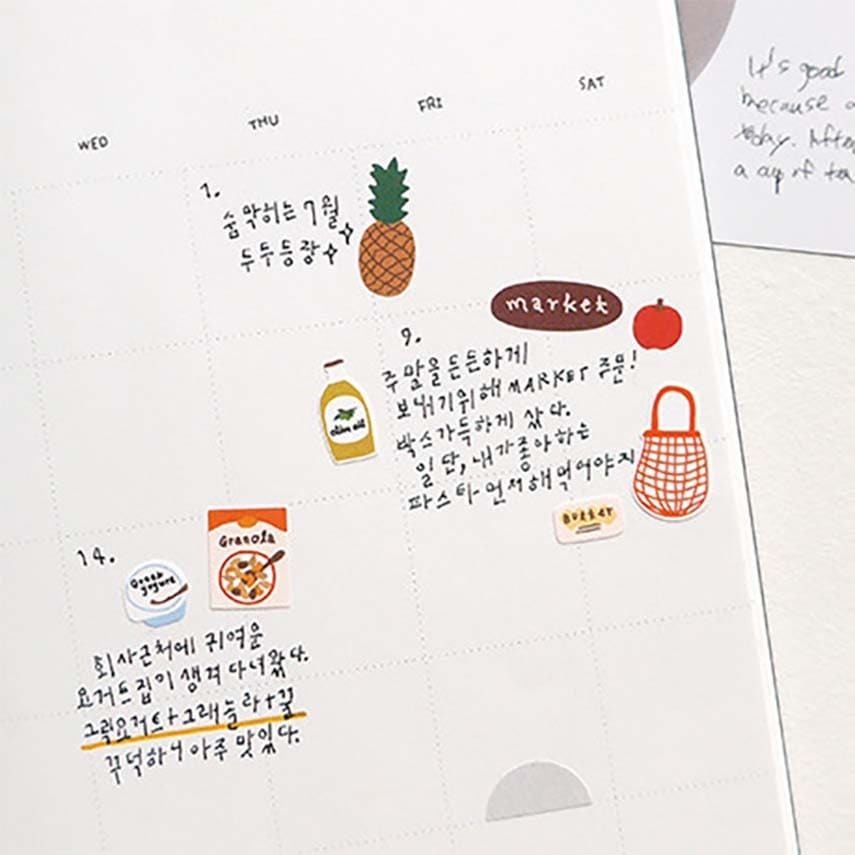 WED
THU
FRI
SAT
1.
숨막히는 7월
두두등장
market
9.
주말을 든든하게
보내기위해 MARKET 주문!
박스가득하게 샀다.
일단, 내가좋아하는
파스타 먼저해먹어야지
olive oil
BUTTER
14.
Greek
yogurt
Granola
회사근처에 귀여운
요거트집이 생겨 다녀왔다.
그릭요거트+그래놀라+꿀
꾸덕하니 아주 맛있다.
It's good
because a
today. Afte
a cup of tea